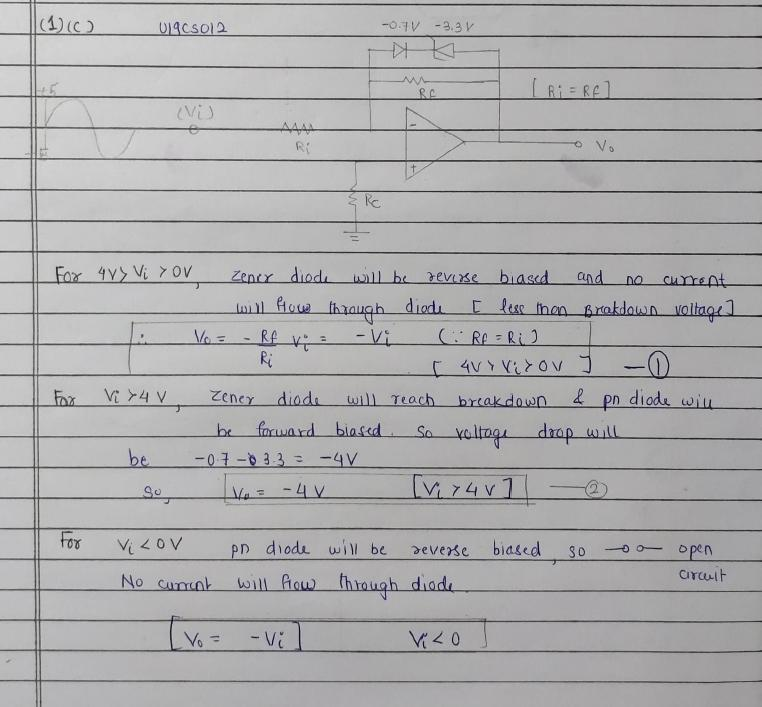 (1)(C) U19CS012 -0.7V -3.3V
+5 Rf [ Ri = Rf ]
(Vi) - Vo
Ri +
Rc
For 4V > Vi > 0V, zener diode will be reverse biased and no current
will flow through diode [ less than Breakdown voltage ]
∴ Vo = - Rf/Ri Vi = - Vi (∵ Rf = Ri)
[ 4V > Vi > 0V ] — ①
For Vi > 4V, Zener diode will reach breakdown & pn diode will
be forward biased. So voltage drop will
be -0.7 - 3.3 = -4V
So, Vo = -4V [Vi > 4V] — ②
For Vi < 0V pn diode will be reverse biased, so open
circuit
No current will flow through diode.
[ Vo = - Vi ] Vi < 0 ]